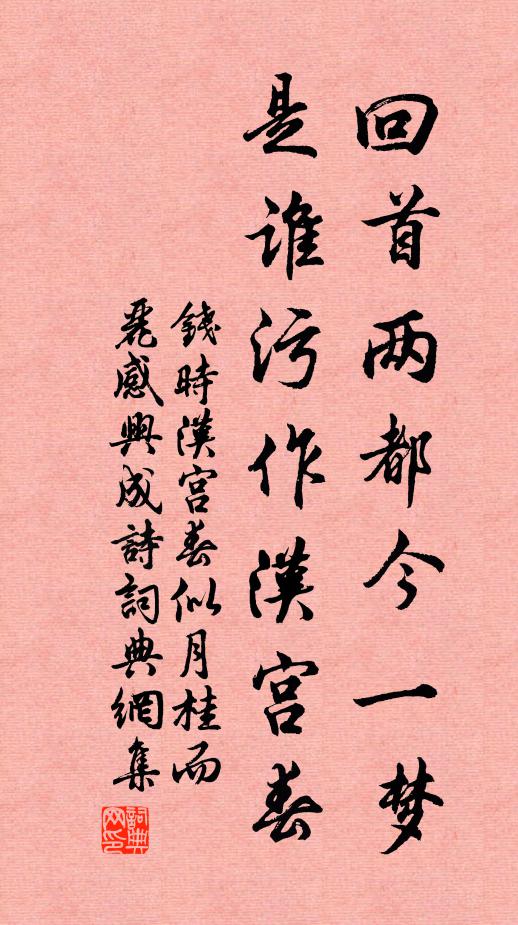 回首两都今一梦
是谁污作漢宫春
錢時漢宫春似月桂而
麗感興成詩詞典網集
詞典网印